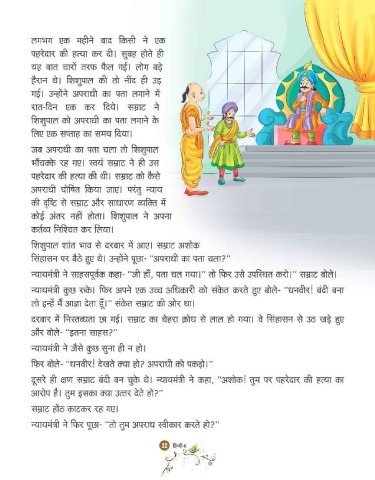 लगभग एक महीने बाद किसी ने एक
पहरेदार की हत्या कर दी। सुबह होते ही
यह बात चारों तरफ फैल गई। लोग बड़े
हैरान थे। शिशुपाल की तो नींद ही उड़
गई। उन्होंने अपराधी का पता लगाने में
रात-दिन एक कर दिये। सम्राट ने
शिशुपाल को अपराधी का पता लगाने के
लिए एक सप्ताह का समय दिया।
जब अपराधी का पता चला तो शिशुपाल
भौंचक्के रह गए। स्वयं सम्राट ने ही उस
पहरेदार की हत्या की थी। सम्राट को कैसे
अपराधी घोषित किया जाए। परंतु न्याय
की दृष्टि से सम्राट और साधारण व्यक्ति में
कोई अंतर नहीं होता। शिशुपाल ने अपना
कर्तव्य निश्चित कर लिया।
शिशुपाल शांत भाव से दरबार में आए। सम्राट अशोक
सिंहासन पर बैठे हुए थे। उन्होंने पूछा- "अपराधी का पता चला?"
न्यायमंत्री ने साहसपूर्वक कहा- "जी हाँ, पता चल गया।" तो फिर उसे उपस्थित करो।" सम्राट बोले।
न्यायमंत्री कुछ रुके। फिर अपने एक उच्च अधिकारी को संकेत करते हुए बोले- "धनवीर! बंदी बना
लो इन्हें मैं आज्ञा देता हूँ।" संकेत सम्राट की ओर था।
दरबार में निस्तब्धता छा गई। सम्राट का चेहरा क्रोध से लाल हो गया। वे सिंहासन से उठ खड़े हुए
और बोले- "इतना साहस?"
न्यायमंत्री ने जैसे कुछ सुना ही न हो।
फिर बोले- "धनवीर! देखते क्या हो? अपराधी को पकड़ो।"
दूसरे ही क्षण सम्राट बंदी बन चुके थे। न्यायमंत्री ने कहा, "अशोक! तुम पर पहरेदार की हत्या का
आरोप है। तुम इसका क्या उत्तर देते हो?"
सम्राट होंठ काटकर रह गए।
न्यायमंत्री ने फिर पूछा- "तो तुम अपराध स्वीकार करते हो?"
22 हिन्दी-6